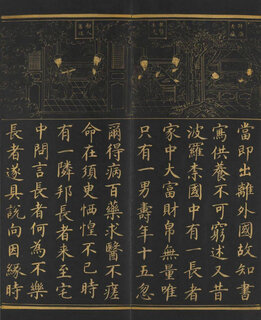 當即出離外國故知書
寫供養不可窮述又昔
波羅柰國中有一長者
家中大富財帛無量唯
只有一男壽年十五忽
爾得病百藥求醫不瘥
命在須臾恓惶不已時
有一隣邦長者來至宅
中問言長者何為不樂
長者遂具説向因緣時